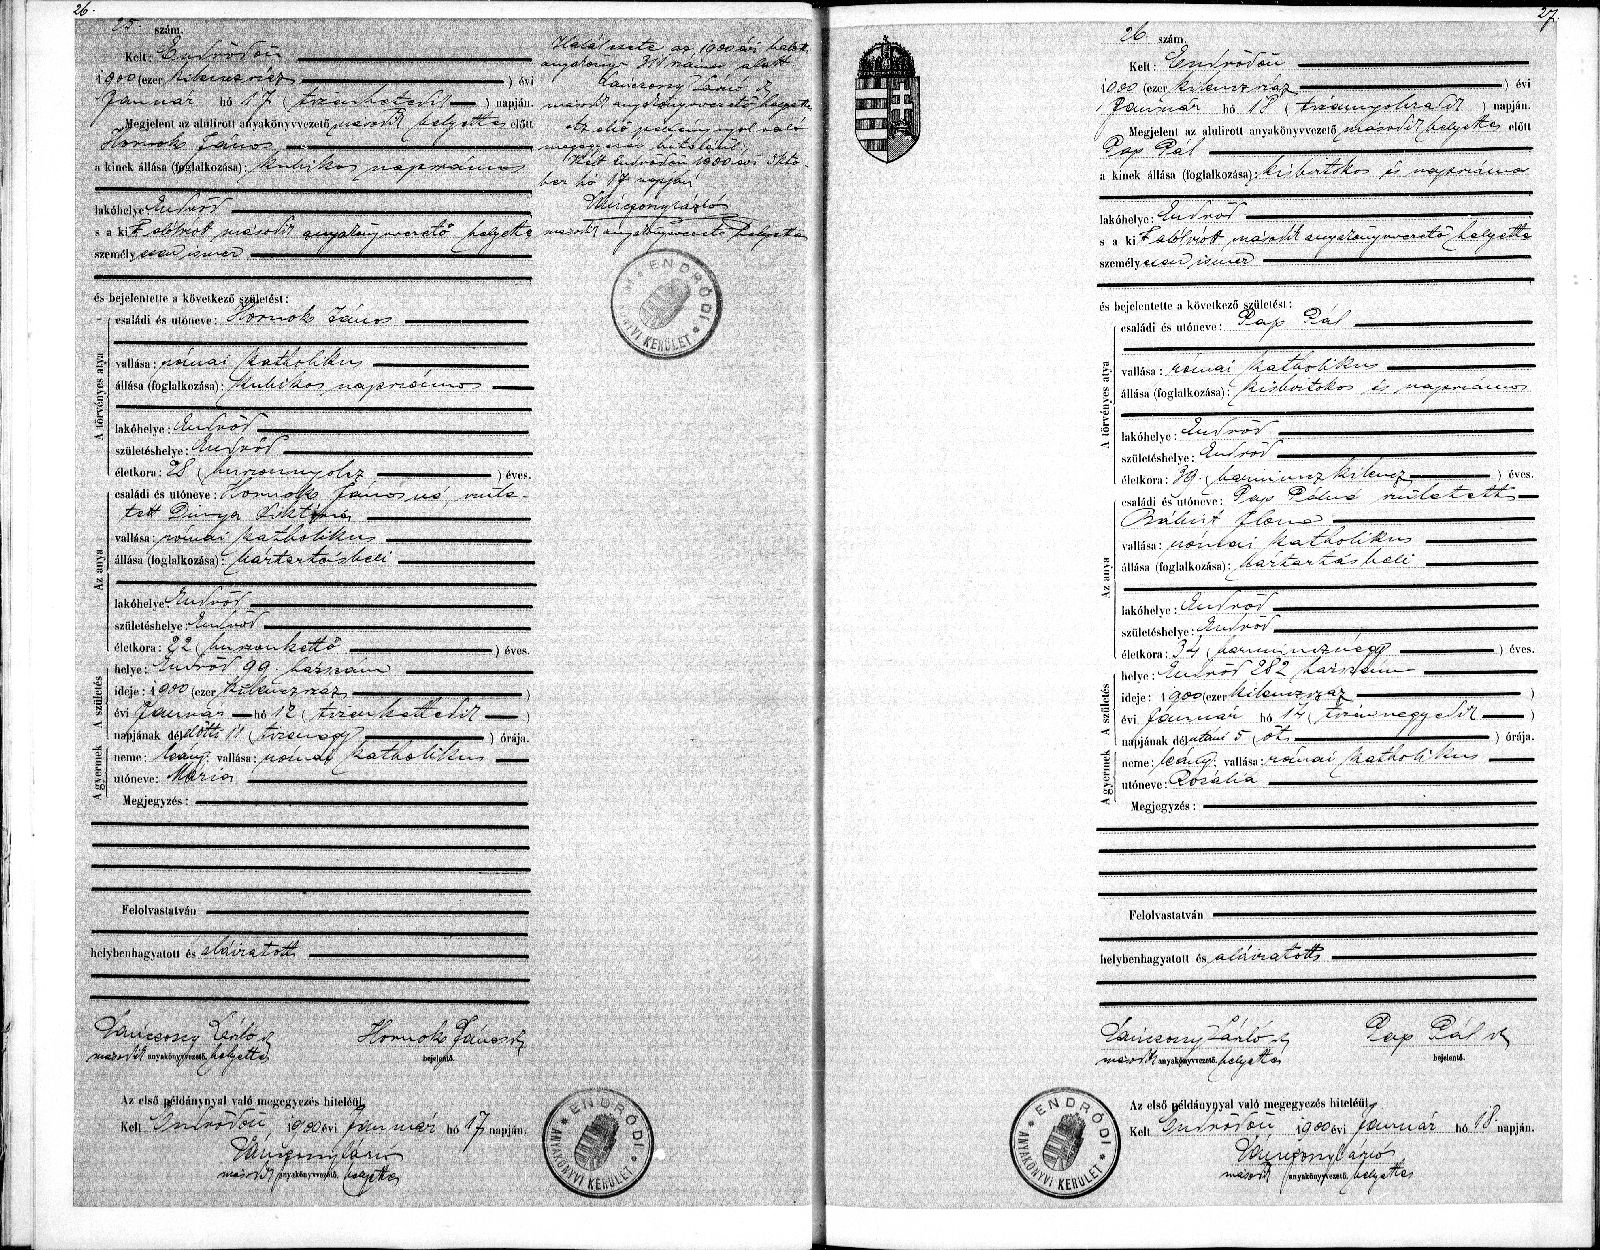 26.
25 szám.
Kelt: Endrődön
1900 (ezer kilenczszáz) évi
Január hó 17 (tizenhetedik) napján.
Megjelent az alulirott anyakönyvvezető második helyettes előtt
Hornok János
a kinek állása (foglalkozása): kubikos napszámos
lakóhelye Endrőd
s a kit alólirott második anyakönyvvezető helyettes
személyesen ismer
és bejelentette a következő születést:
A törvényes atya
családi és utóneve: Hornok János
vallása: római katholikus
állása (foglalkozása): kubikos napszámos
lakóhelye: Endrőd
születéshelye: Endrőd
életkora: 28 (huszonnyolcz) éves.
Az anya
családi és utóneve: Hornok Jánosné, szüle-
tett Dinya Viktória
vallása: római katholikus
állása (foglalkozása): háztartásbeli
lakóhelye: Endrőd
születéshelye: Endrőd
életkora: 22 (huszonkettő) éves.
A születés
helye: Endrőd 99 házszám
ideje: 1900 (ezer kilenczszáz)
évi Január hó 12 (tizenkettedik)
napjának délelőtti 11 (tizenegy) órája.
A gyermek
neme: leány; vallása: római katholikus
utóneve: Mária
Megjegyzés:
Felolvastatván
helybenhagyatott és aláiratott
Lánczony László sk
második anyakönyvvezető. helyettes
Hornok János sk
bejelentő.
Az első példánynyal való megegyezés hiteléül,
Kelt Endrődön 1900 évi Január hó 17 napján.
Lánczony László
második anyakönyvvezető. helyettes
ENDRŐDI ANYAKÖNYVI KERÜLET
Halálesete az 1900 évi halotti
anyakönyv szám alatt
Lánczony László sk
második anyakönyvvezető helyettes
Az első példánynyal való
megegyezés hiteléül
Kelt Endrődön 1900 évi Októ-
ber hó 17 napján
Lánczony László
második anyakönyvvezető helyettes
ENDRŐDI ANYAKÖNYVI KERÜLET
27.
26 szám.
Kelt: Endrődön
1900 (ezer kilenczszáz) évi
Január hó 18 (tizennyolczadik) napján.
Megjelent az alulirott anyakönyvvezető második helyettes előtt
Pap Pál
a kinek állása (foglalkozása): kisbirtokos és napszámos
lakóhelye: Endrőd
s a kit alólirott második anyakönyvvezető helyettes
személyesen ismer
és bejelentette a következő születést:
A törvényes atya
családi és utóneve: Pap Pál
vallása: római katholikus
állása (foglalkozása): kisbirtokos és napszámos
lakóhelye: Endrőd
születéshelye: Endrőd
életkora: 39 (harminczkilencz) éves.
Az anya
családi és utóneve: Pap Pálné született
Bálint Ilona
vallása: római katholikus
állása (foglalkozása): háztartásbeli
lakóhelye: Endrőd
születéshelye: Endrőd
életkora: 34 (harmincznégy) éves.
A születés
helye: Endrőd 282 házszám
ideje: 1900 (ezer kilenczszáz)
évi Január hó 14 (tizennegyedik)
napjának délutáni 5 (öt) órája.
A gyermek
neme: leány; vallása: római katholikus
utóneve: Rozália
Megjegyzés:
Felolvastatván
helybenhagyatott és aláiratott
Lánczony László sk
második anyakönyvvezető. helyettes
Pap Pál sk
bejelentő.
Az első példánynyal való megegyezés hiteléül,
Kelt Endrődön 1900 évi Január hó 18 napján.
Lánczony László
második anyakönyvvezető. helyettes
ENDRŐDI ANYAKÖNYVI KERÜLET